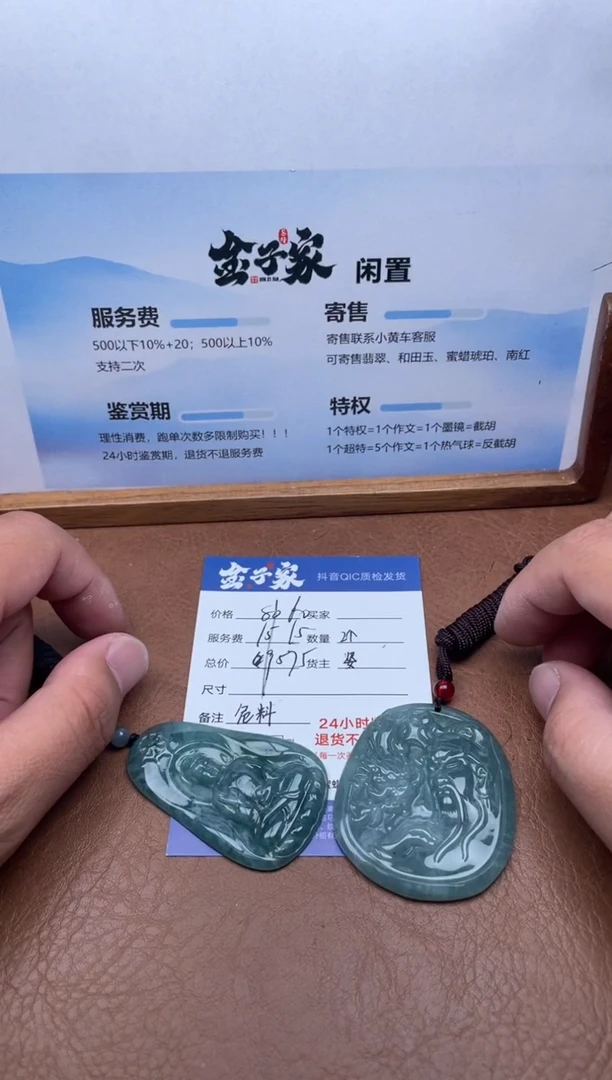 金子家 闲置
服务费
500以下10%+20；500以上10%
支持二次
寄售
寄售联系小黄车客服
可寄售翡翠、和田玉、蜜蜡琥珀、南红
鉴赏期
理性消费，跑单次数多限制购买！！！
24小时鉴赏期，退货不退服务费
特权
1个特权=1个作文=1个墨镜=截胡
1个超特=5个作文=1个热气球=反截胡
金子家 抖音QIC质检发货
价格 买家
服务费 15 15 数量 2个
总价 货主
尺寸
备注 危料
24小时
退货不